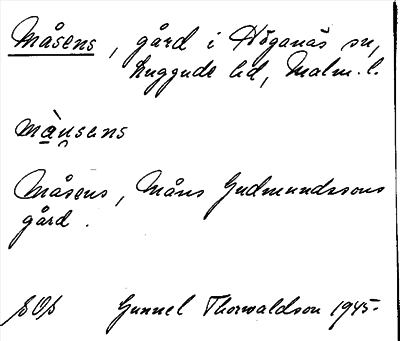 Måsens, gård i Höganäs sn,
Luggude hd, Malm. l.
mànsens
Måsens, Måns Gudmundssons
gård.
SOS Gunnel Thorwaldson 1945.